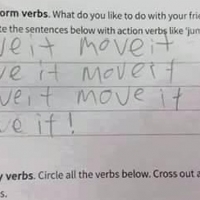 orm verbs. What do you like to do with your frie
te the sentences below with action verbs like 'jun
ve it move it
ve it move it
ve it move it
ve it!
y verbs. Circle all the verbs below. Cross out a
s.